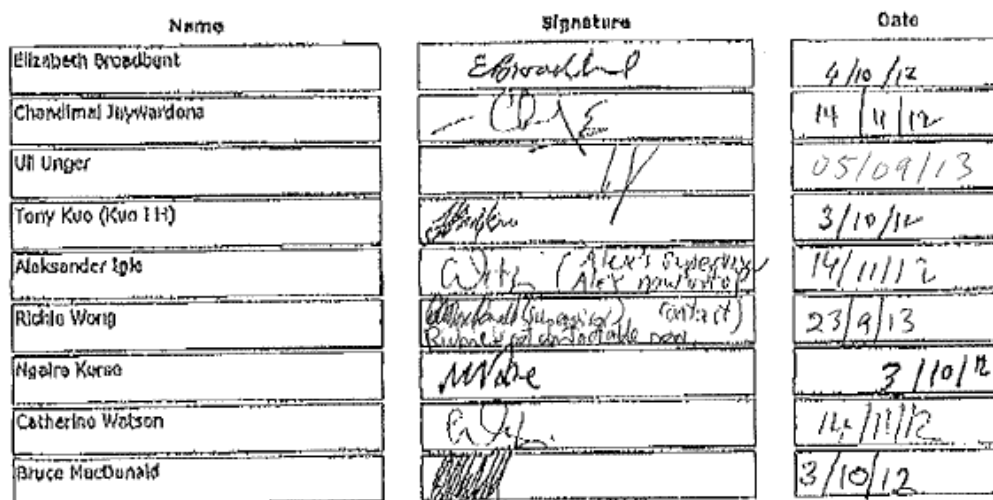 Name Signature Date
Elizabeth Broadbent EBroadbent 4/10/12
Chandimal Jaywardona 14/11/12
Uli Unger 05/09/13
Tony Kuo (Kuo IH) 3/10/12
Aleksander (Alex's supervisor 14/11/12
Alex now out of
contact)
Richie Wong (supervisor) 23/9/13
Richie is not contactable now.
Ngaire Kerse 3/10/12
Catherine Watson 14/11/12
Bruce MacDonald 3/10/12